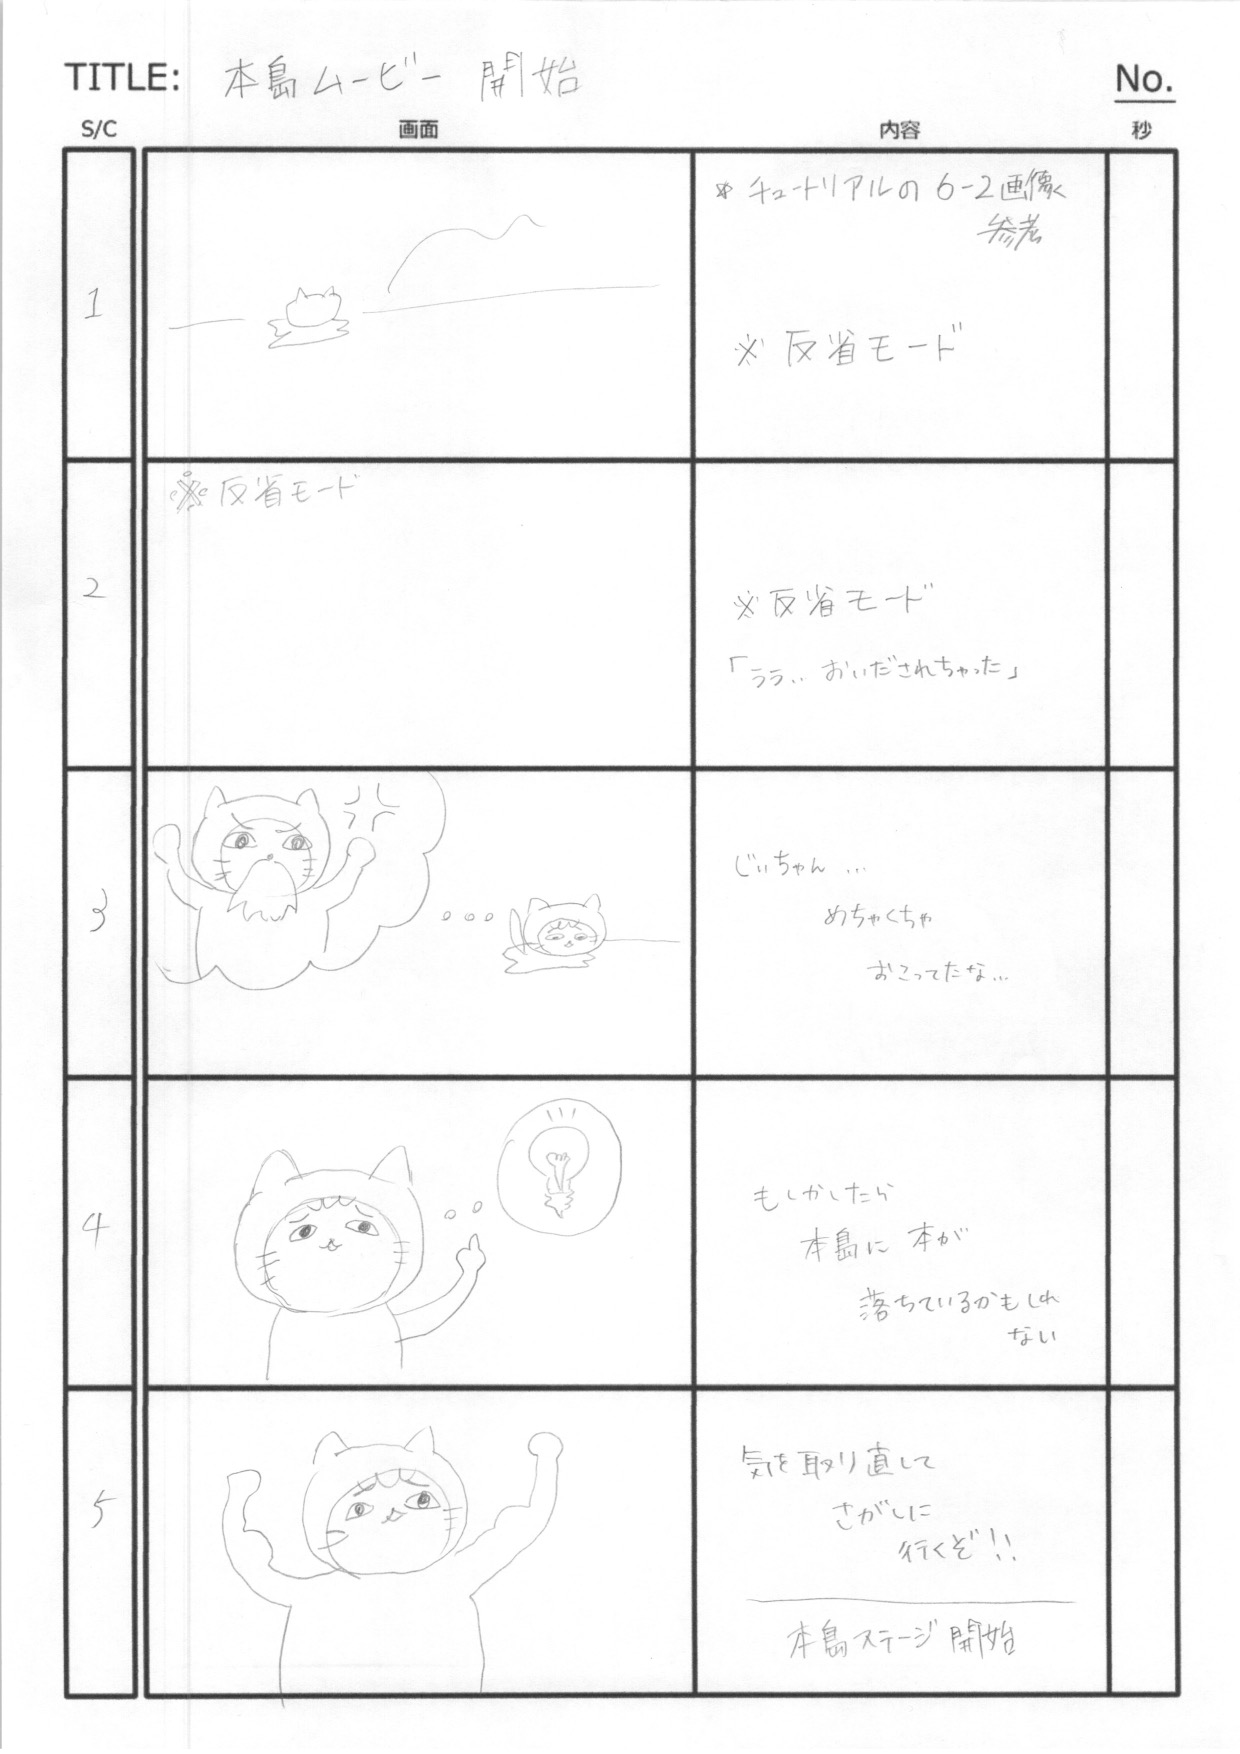 TITLE: 本島ムービー 開始
No.
S/C 画面 内容 秒
1
※ チュートリアルの 6-2画像
参考
※ 反省モード
2
※反省モード
※反省モード
「ララ.. おいだされちゃった」
3
じいちゃん ...
めちゃくちゃ
おこってたな...
4
もしかしたら
本島に 本が
落ちているかもしれ
ない
5
気を取り直して
さがしに
行くぞ!!
本島ステージ開始